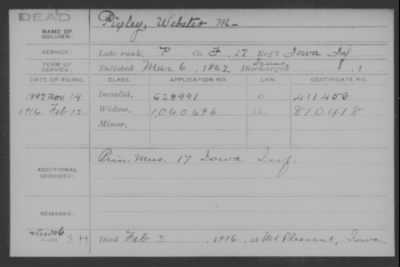 DEAD
NAME OF SOLDIER: Pixley, Webster M.
SERVICE: Late rank, P Co. F, 17 Reg't Iowa Inf
TERM OF SERVICE: Enlisted Mar 6, 1862 Discharged , 1
DATE OF FILING. CLASS. APPLICATION NO. LAW. CERTIFICATE NO.
Nov 19 Invalid, 628991 411456
1916 Feb 12 Widow, 1,060,696 a 810,418
Minor,
Prin. Mus. 17 Iowa Inf.
ADDITIONAL SERVICES:
REMARKS:
Died Feb 3, 1916, at Mt Pleasant, Iowa.